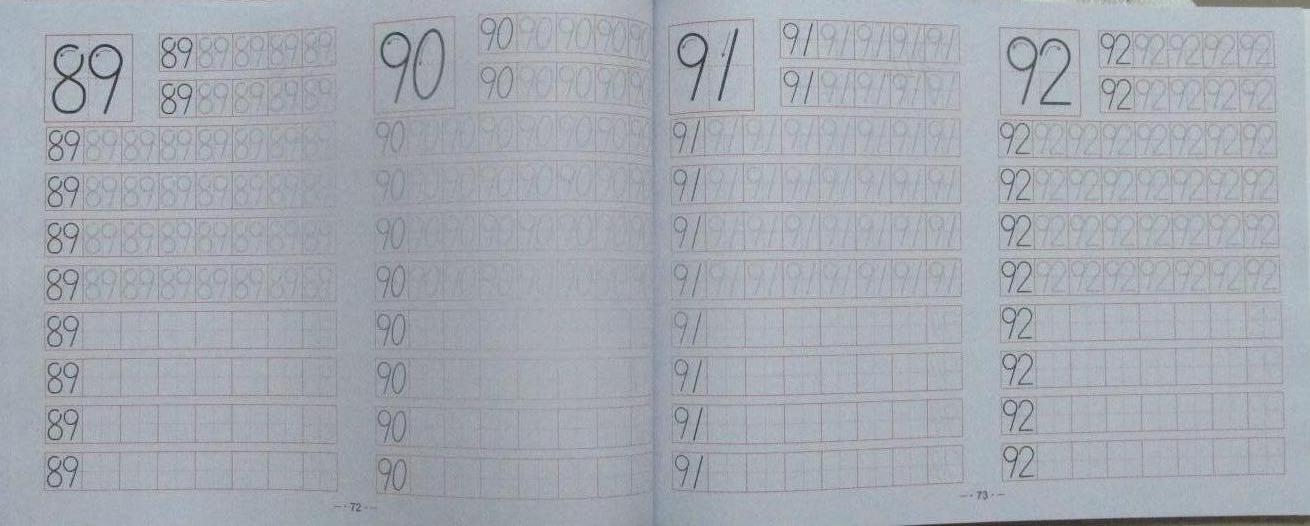 89
89 89 89 89 89
89 89 89 89 89
89 89 89 89 89 89 89 89
89 89 89 89 89 89 89 89
89 89 89 89 89 89 89 89
89 89 89 89 89 89 89 89
89
89
89
89
90
90 90 90 90 90
90 90 90 90 90
90 90 90 90 90 90 90 90
90 90 90 90 90 90 90 90
90 90 90 90 90 90 90 90
90 90 90 90 90 90 90 90
90
90
90
90
-·72·-
91
91 91 91 91 91
91 91 91 91 91
91 91 91 91 91 91 91 91
91 91 91 91 91 91 91 91
91 91 91 91 91 91 91 91
91 91 91 91 91 91 91 91
91
91
91
91
92
92 92 92 92 92
92 92 92 92 92
92 92 92 92 92 92 92 92
92 92 92 92 92 92 92 92
92 92 92 92 92 92 92 92
92 92 92 92 92 92 92 92
92
92
92
92
-·73·-